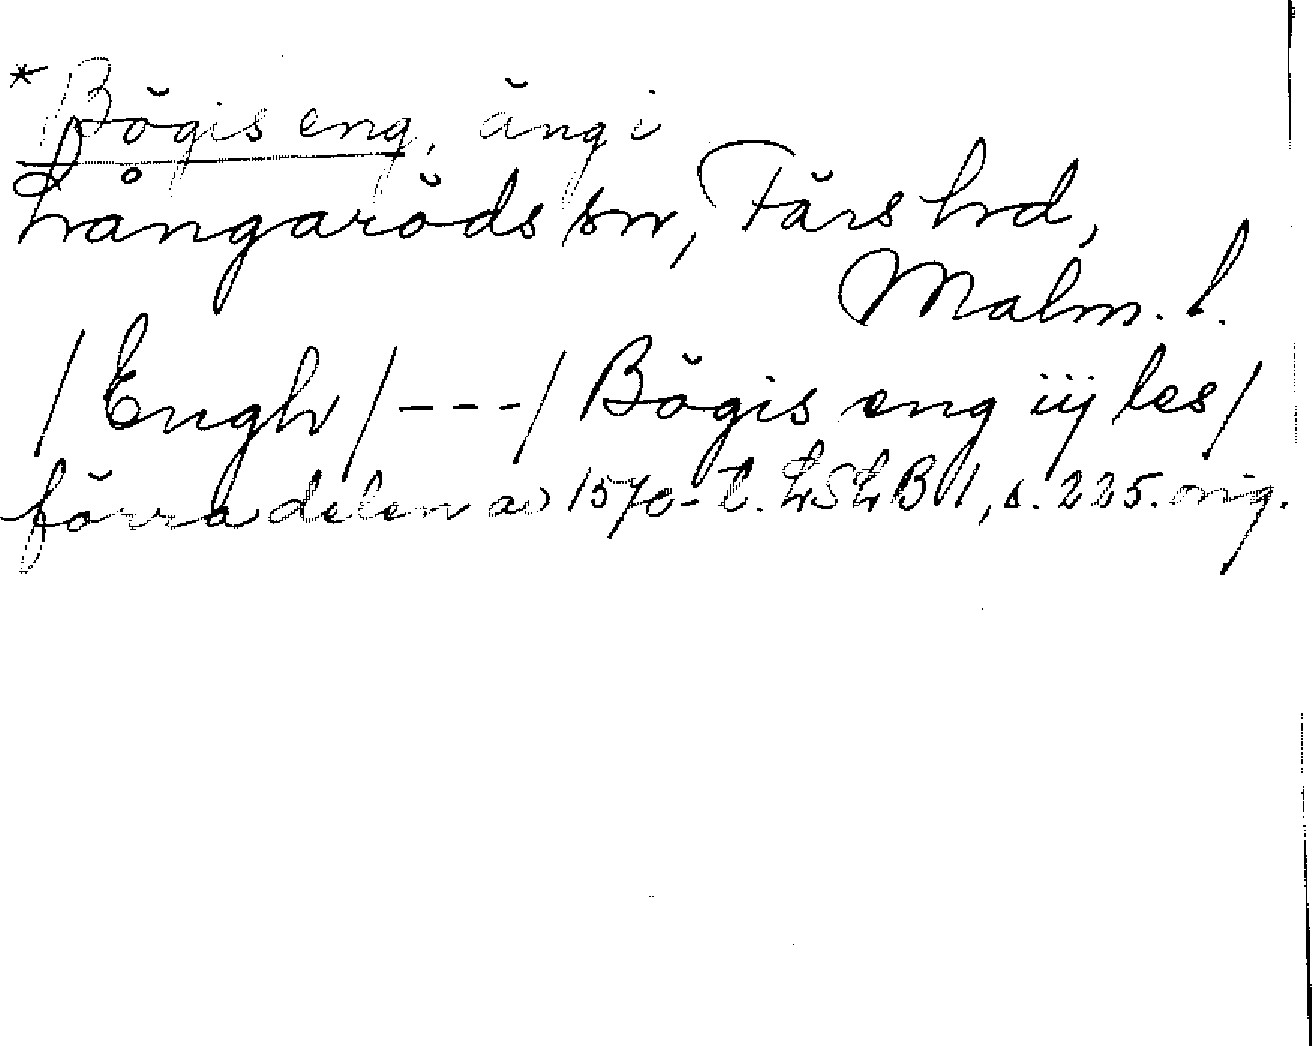 *Bögis eng, äng i
Långaröds sn, Färs hd,
Malm. l.
/Engh/---/ Bögis eng iij les/
förra delen av 1570-t. LSLB 1, s. 225. orig.